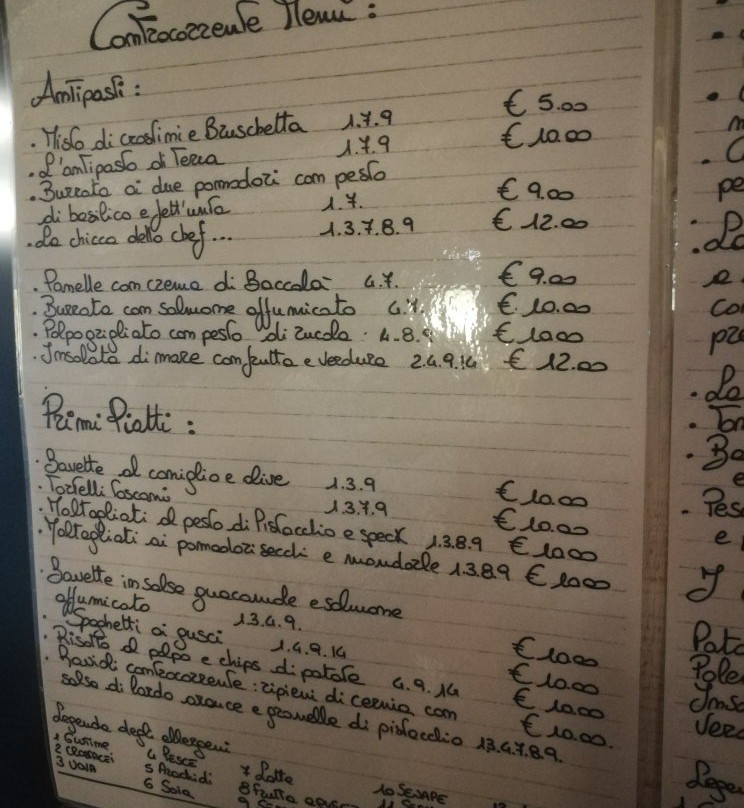 Controcorrente Menu:
Antipasti:
. Misto di crostini e Bruschetta 1.7.9 € 5.00
. L'antipasto di Terra 1.7.9 € 10.00
. Burrata ai due pomodori con pesto
di basilico e fett'unta 1.7. € 9.00
. La chicca dello chef... 1.3.7.8.9 € 12.00
. Panelle con crema di Baccalà 4.7. € 9.00
. Burrata con salmone affumicato 4.7. € 10.00
. Polpo grigliato con pesto di rucola . 4.8.9 € 10.00
. Insalata di mare con frutta e verdura 2.4.9.14 € 12.00
Primi Piatti:
. Bavette al coniglio e olive 1.3.9 € 10.00
. Tortelli toscani 1.3.7.9 € 10.00
. Maltagliati al pesto di Pistacchio e speck 1.3.8.9 € 10.00
. Maltagliati ai pomodori secchi e mandorle 1.3.8.9 € 10.00
. Bavette in salsa guacamole e salmone
affumicato 1.3.4.9. € 10.00
. Spaghetti ai gusci 1.4.9.14 € 10.00
. Risotto al polpo e chips di patate 4.9.14 € 10.00
. Ravioli controcorrente: ripieni di cernia con
salsa di lardo arance e granella di pistacchio 1.3.4.7.8.9. € 10.00.
Legenda degli allergeni
1 Glutine 4 Pesce 7 Latte 10 Senape
2 Crostacei 5 Arachidi 8 Frutta
3 Uova 6 Soia 9